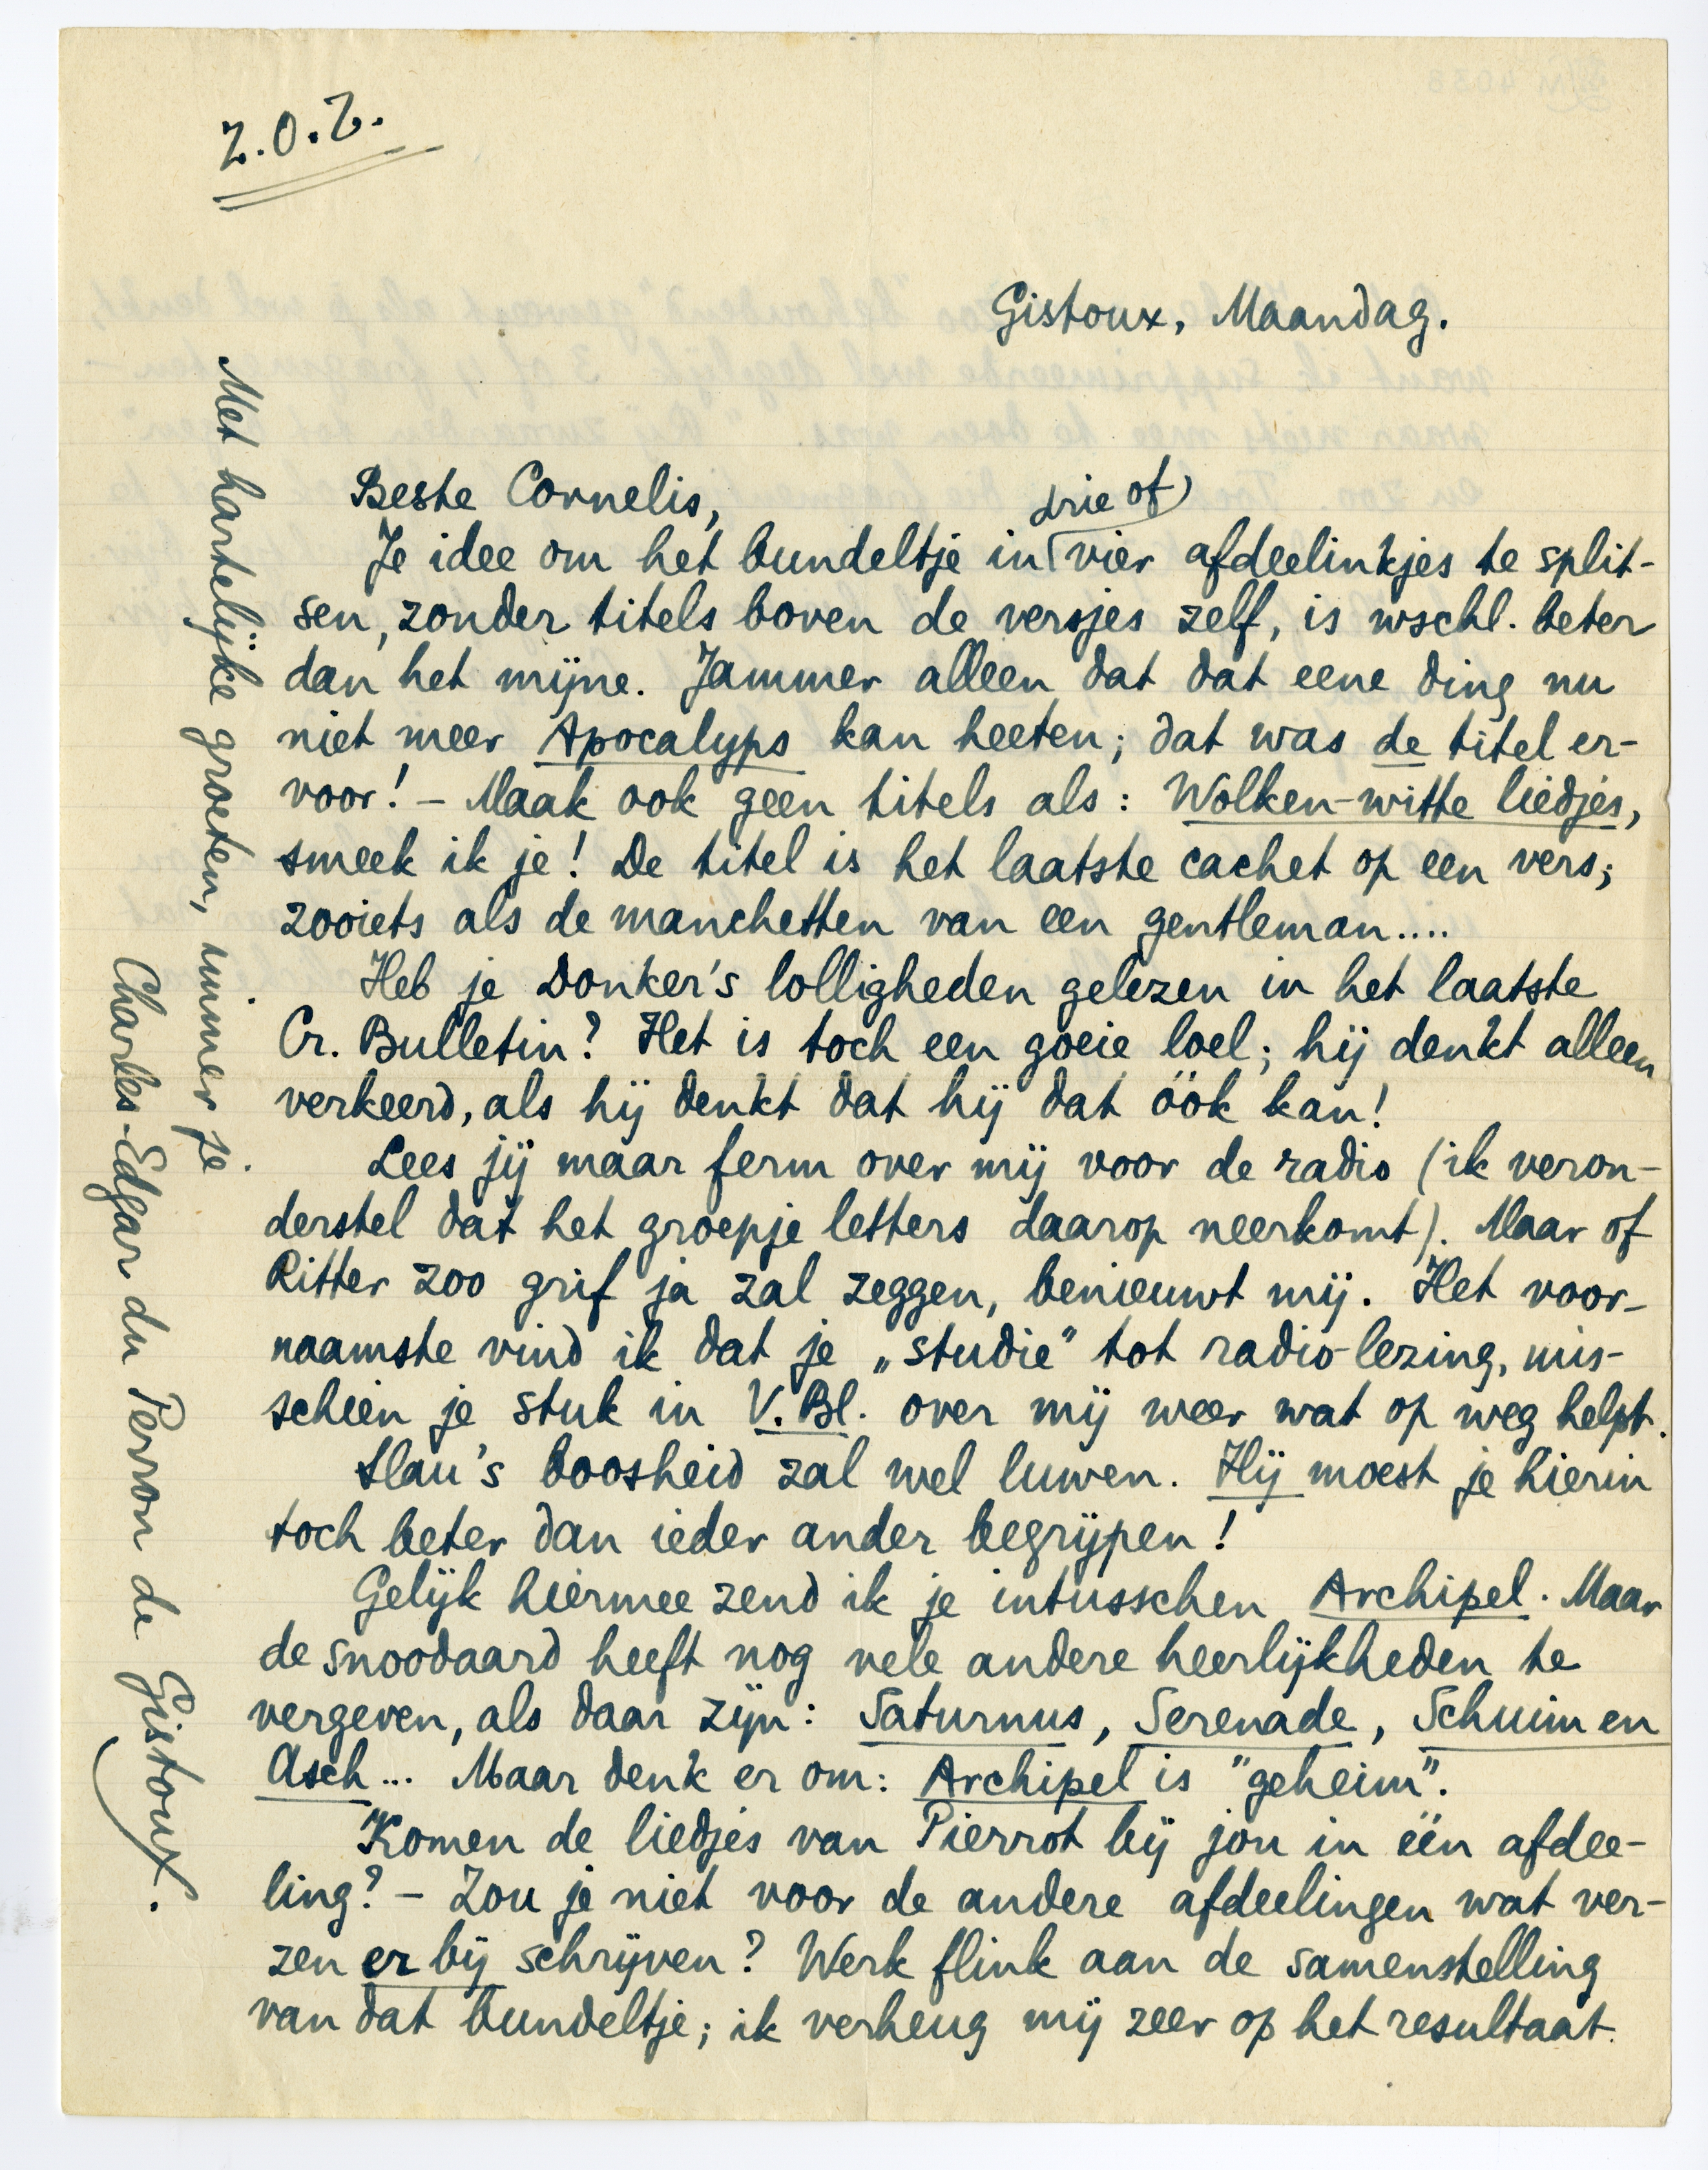 Z.O.Z.
Gistoux, Maandag.
Beste Cornelis,
drie of
Je idee om het bundeltje in vier afdeelinkjes te split-
sen, zonder titels boven de versjes zelf, is wschl. beter
dan het mijne. Jammer alleen dat dat eene ding nu
niet meer Apocalyps kan heeten; dat was de titel er-
voor! – Maak ook geen titels als: Wolken-witte liedjes,
smeek ik je! De titel is het laatste cachet op een vers;
zooiets als de manchetten van een gentleman....
Heb je Donker's lolligheden gelezen in het laatste
Cr. Bulletin? Het is toch een goeie loel; hij denkt alleen
verkeerd, als hij denkt dat hij dat óók kan!
Lees jij maar ferm over mij voor de radio (ik veron-
derstel dat het groepje letters daarop neerkomt). Maar of
Ritter zoo grif ja zal zeggen, benieuwt mij. Het voor-
naamste vind ik dat je „studie" tot radio-lezing, mis-
schien je stuk in V.Bl. over mij weer wat op weg helpt.
Slau's boosheid zal wel luwen. Hij moest je hierin
toch beter dan ieder ander begrijpen!
Gelijk hiermee zend ik je intusschen Archipel. Maar
de snoodaard heeft nog vele andere heerlijkheden te
vergeven, als daar zijn: Saturnus, Serenade, Schuim en
Asch... Maar denk er om: Archipel is "geheim".
Komen de liedjes van Pierrot bij jou in één afdee-
ling? – Zou je niet voor de andere afdeelingen wat ver-
zen er bij schrijven? Werk flink aan de samenstelling
van dat bundeltje; ik verheug mij zeer op het resultaat.
Met hartelijke groeten, immer je
Charles-Edgar du Perron de Gistoux.